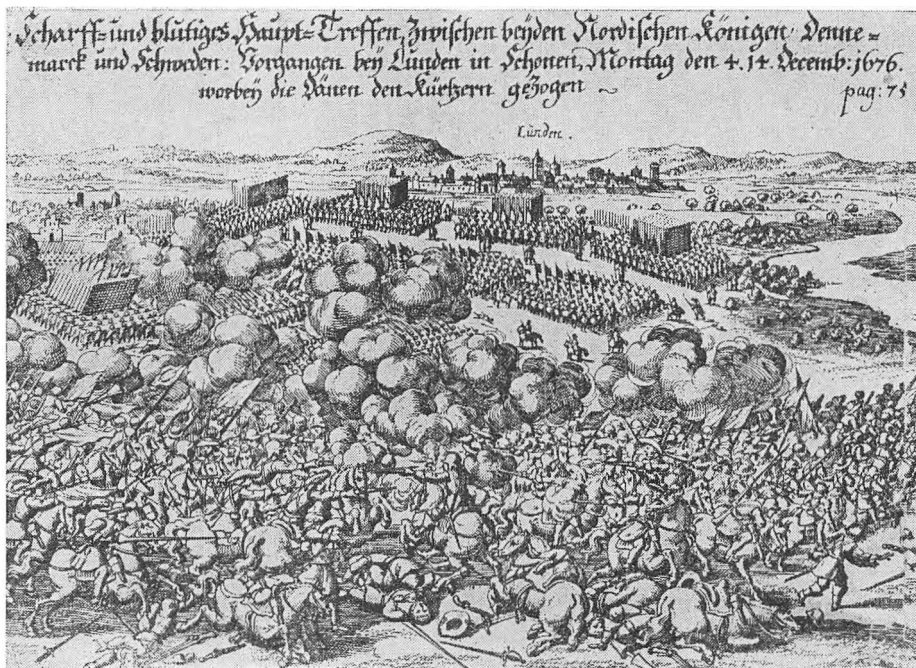 Scharff= und blutiges Haupt=Treffen, zwischen beyden Nordischen Königen Denne=
marck und Schweden: Vorgangen bey Lunden in Schonen, Montag den 4. 14. Decemb: 1676.
worbey die Dänen den Kürtzern gezogen ~
pag: 75
Lunden.